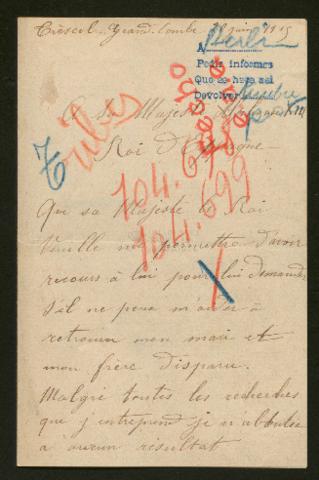 Trescol Grand-Combe 18 juin 1915
Berlin
A
Pedir informes
Que se haga asi
Devolver
A sa Majesté Alphonse XIII
Roi d'Espagne
104.699
104.699
Que sa Majesté le Roi
Veuille me permettre d'avoir
recours à lui pour lui demander
s'il ne peux m'aider à
retrouver mon mari et
mon frère disparu.
Malgré toutes les recherches
que j'entreprend je n'abbutie
à aucun résultat